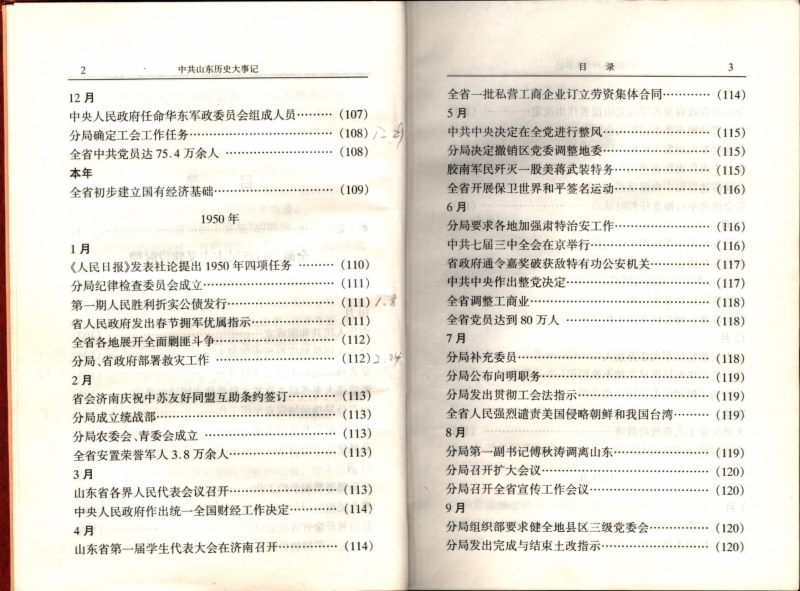 2 中共山东历史大事记
12月
中央人民政府任命华东军政委员会组成人员………(107)
分局确定工会工作任务……………………………(108) 12.29
全省中共党员达75.4万余人………………………(108)
本年
全省初步建立国有经济基础………………………(109)
1950年
1月
《人民日报》发表社论提出1950年四项任务…………(110)
分局纪律检查委员会成立…………………………(111)
第一期人民胜利折实公债发行……………………(111) 1.8
省人民政府发出春节拥军优属指示………………(111)
全省各地展开全面剿匪斗争………………………(112)
分局、省政府部署救灾工作………………………(112) 2.24
2月
省会济南庆祝中苏友好同盟互助条约签订…………(113)
分局成立统战部……………………………………(113)
分局农委会、青委会成立…………………………(113)
全省安置荣誉军人3.8万余人………………………(113)
3月
山东省各界人民代表会议召开……………………(113)
中央人民政府作出统一全国财经工作决定…………(114)
4月
山东省第一届学生代表大会在济南召开……………(114)
目 录 3
全省一批私营工商企业订立劳资集体合同…………(114)
5月
中共中央决定在全党进行整风……………………(115)
分局决定撤销区党委调整地委……………………(115)
胶南军民歼灭一股美蒋武装特务…………………(115)
全省开展保卫世界和平签名运动…………………(116)
6月
分局要求各地加强肃特治安工作…………………(116)
中共七届三中全会在京举行………………………(116)
省政府通令嘉奖破获敌特有功公安机关…………(117)
中共中央作出整党决定……………………………(117)
全省调整工商业……………………………………(118)
全省党员达到80万人………………………………(118)
7月
分局补充委员………………………………………(118)
分局公布向明职务…………………………………(119)
分局发出贯彻工会法指示…………………………(119)
全省人民强烈谴责美国侵略朝鲜和我国台湾………(119)
8月
分局第一副书记傅秋涛调离山东…………………(119)
分局召开扩大会议…………………………………(120)
分局召开全省宣传工作会议………………………(120)
9月
分局组织部要求健全地县区三级党委会…………(120)
分局发出完成与结束土改指示……………………(120)